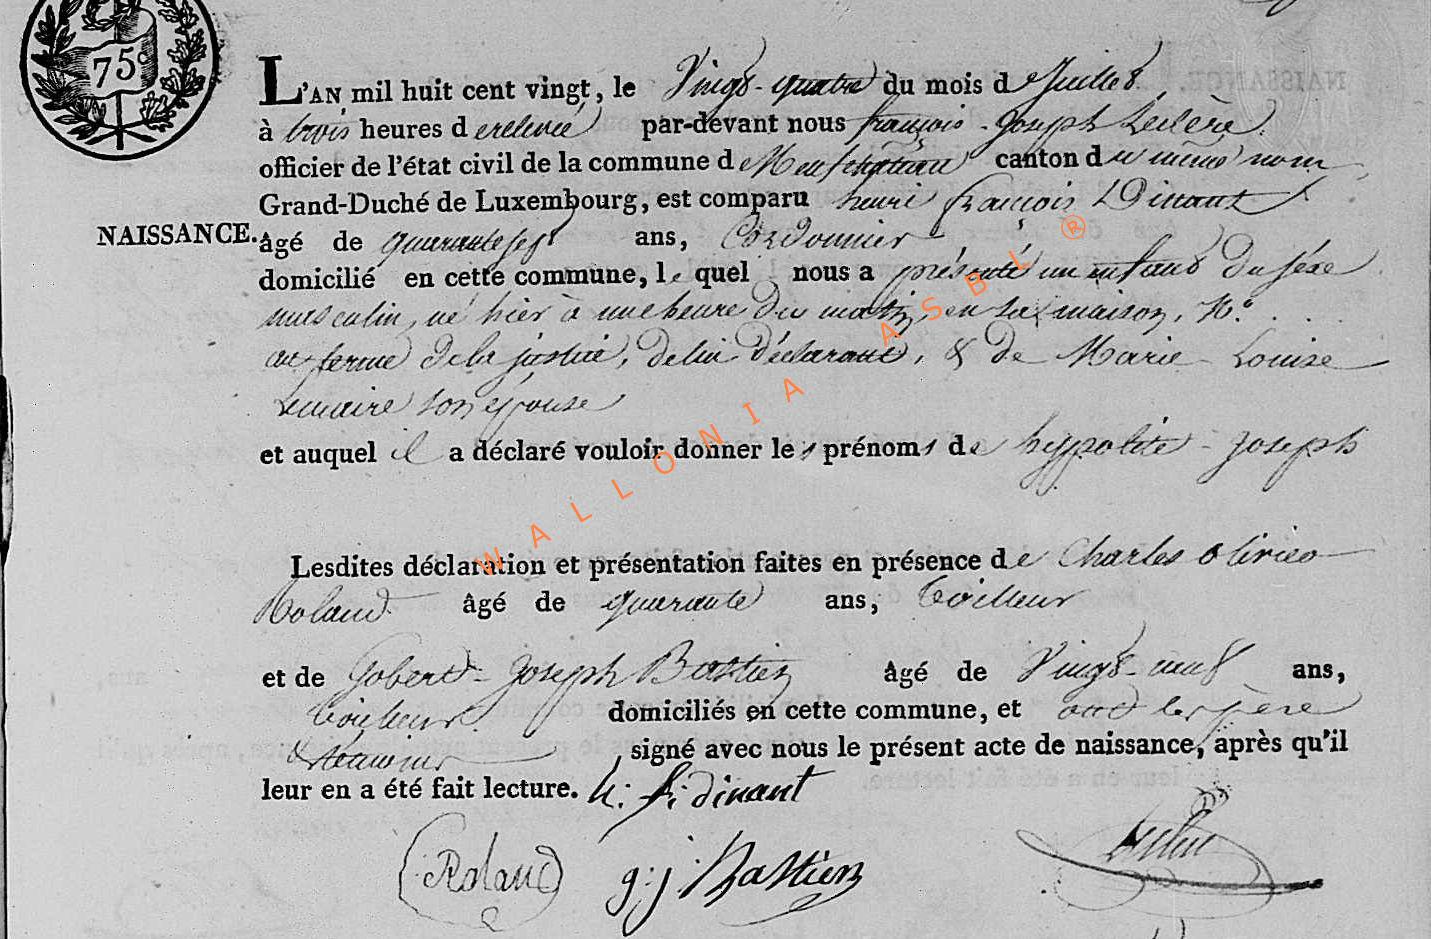 75c
L'AN mil huit cent vingt, le Vingt-quatre du mois de Juillet
à trois heures de relevée par-devant nous françois-Joseph Leclère
officier de l'état civil de la commune de Neufchateau canton du même nom
Grand-Duché de Luxembourg, est comparu henri françois Dinant
NAISSANCE. âgé de quarante sept ans, Cordonnier
domicilié en cette commune, lequel nous a présenté un enfant du séxe
masculin, né hier à une heure du matin, en sa maison, N°. . . .
de la justice, de lui déclarant, & de Marie-Louise
Lemaire son épouse
et auquel il a déclaré vouloir donner les prénoms de hyppolite-Joseph
Lesdites déclaration et présentation faites en présence de Charles Olivier
Roland âgé de quarante ans, tailleur
et de Gobert-Joseph Bastien âgé de Vingt-neuf ans,
domiciliés en cette commune, et ont les père
& témoins signé avec nous le présent acte de naissance, après qu'il
leur en a été fait lecture. h: f: dinant
Roland g: j: Bastien
WALLONIA ASBL ®